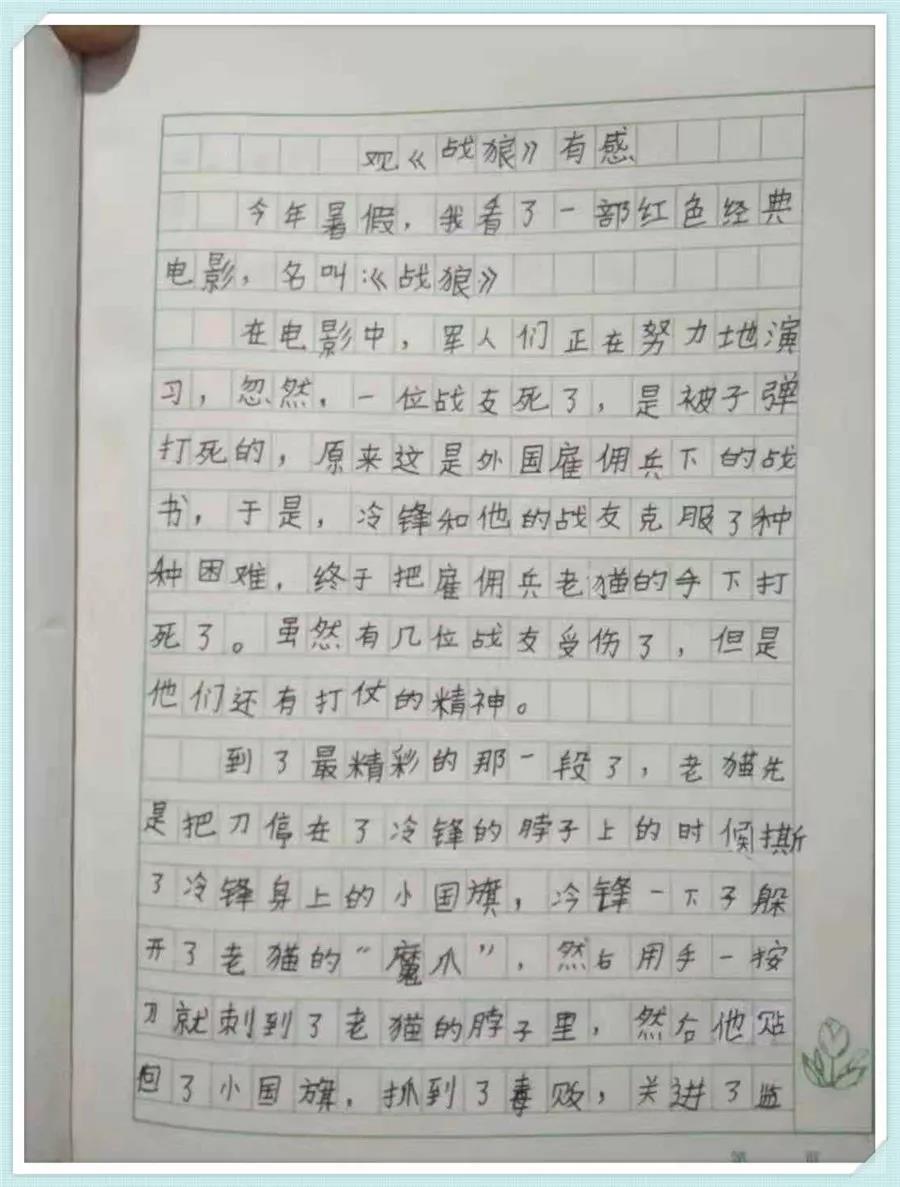 观《战狼》有感
今年暑假，我看了一部红色经典
电影，名叫：《战狼》
在电影中，军人们正在努力地演
习，忽然，一位战友死了，是被子弹
打死的，原来这是外国雇佣兵下的战
书，于是，冷锋和他的战友克服了种
种困难，终于把雇佣兵老猫的手下打
死了。虽然有几位战友受伤了，但是
他们还有打仗的精神。
到了最精彩的那一段了，老猫先
是把刀停在了冷锋的脖子上的时候撕
了冷锋身上的小国旗，冷锋一下子躲
开了老猫的“魔爪”，然后用手一按
刀就刺到了老猫的脖子里，然后他贴
回了小国旗，抓到了毒贩，关进了监
第 页